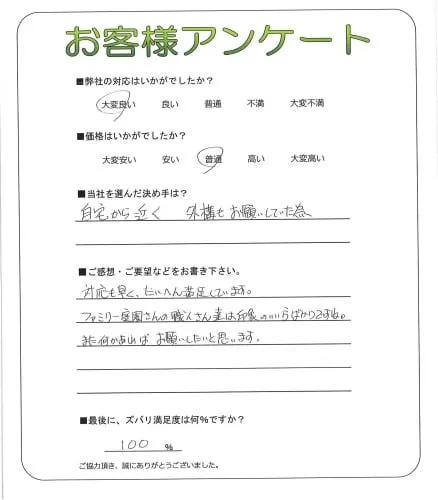 お客様アンケート
■弊社の対応はいかがでしたか？
大変良い 良い 普通 不満 大変不満
■価格はいかがでしたか？
大変安い 安い 普通 高い 大変高い
■当社を選んだ決め手は？
自宅から近く 外構もお願いしていた為、
■ご感想・ご要望などをお書き下さい。
対応も早く、たいへん満足しています。
ファミリー庭園さんの職人さん達は印象のいい方ばかりですね。
また何かあれば お願いしたいと思います。
■最後に、ズバリ満足度は何％ですか？
100 %
ご協力頂き、誠にありがとうございました。